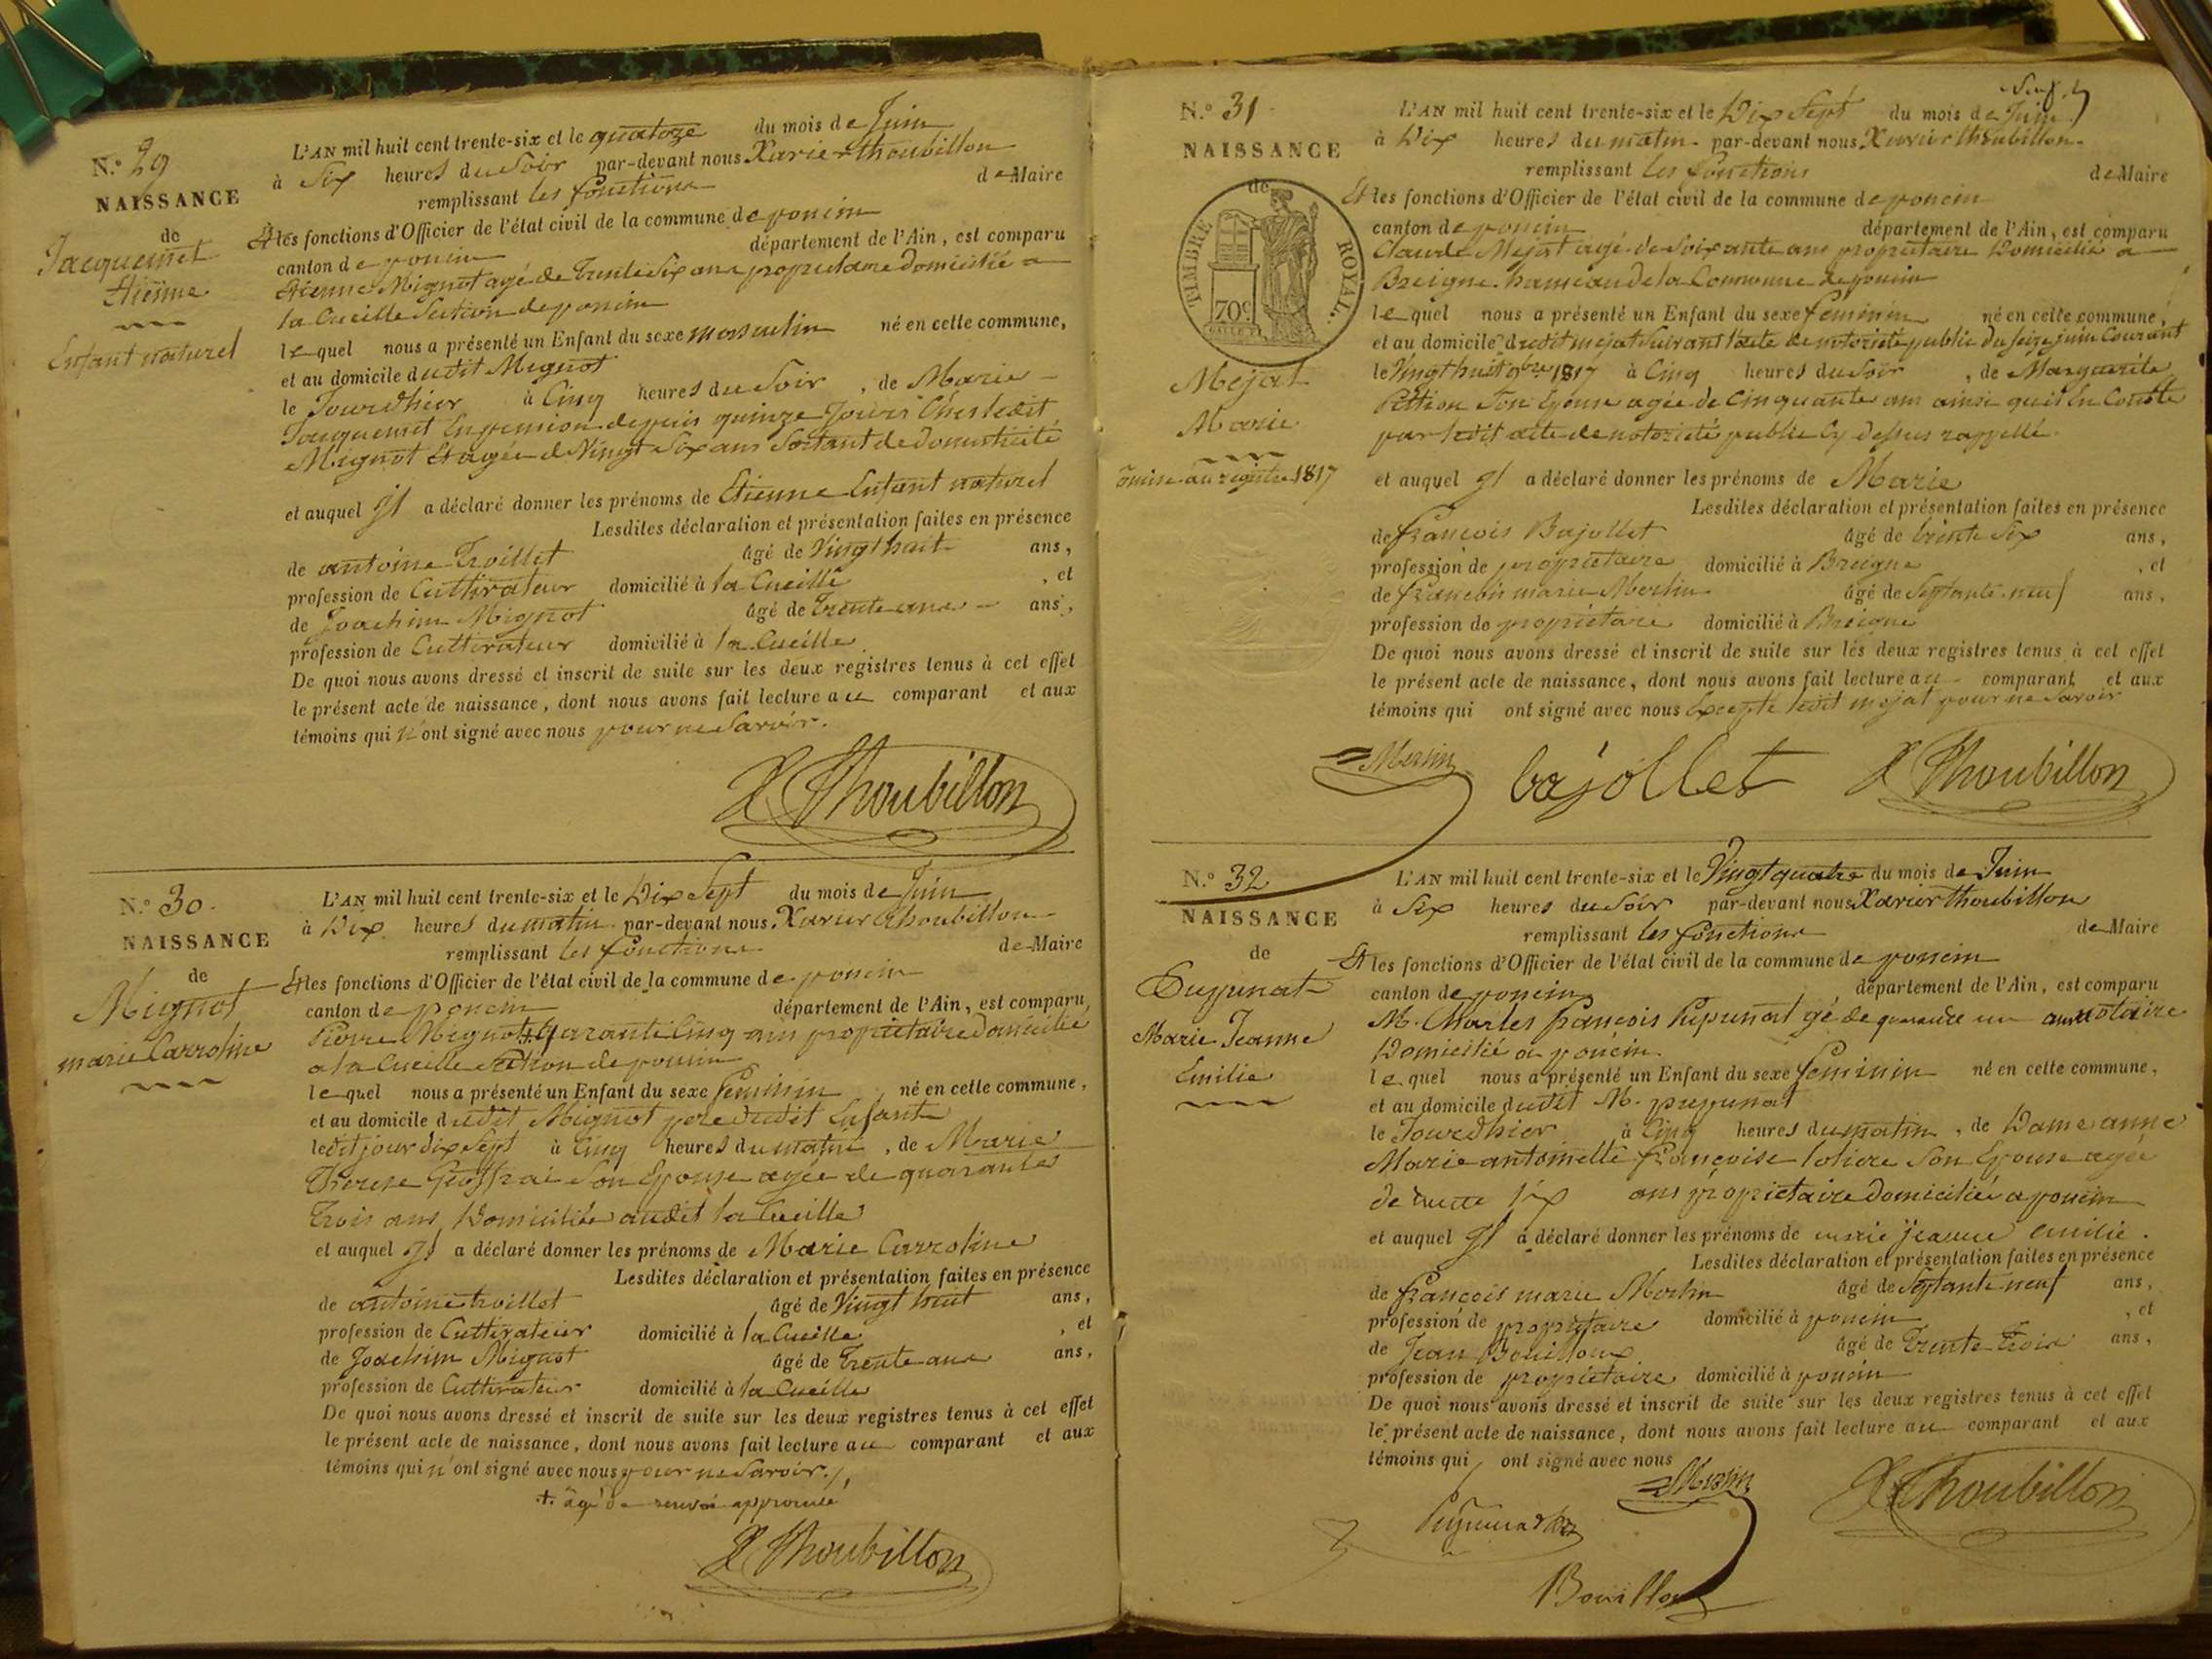 N.° 29
NAISSANCE
de
Jacquemet
Etienne
Enfant naturel
L'AN mil huit cent trente-six et le quatorze du mois de Juin
à Six heures du Soir par-devant nous Xavier Thoubillon
remplissant les fonctions de Maire
Et les fonctions d'Officier de l'état civil de la commune de poncin
canton de poncin département de l'Ain, est comparu
Etienne Mignot agé de Trente Six ans propriétaire Domicilié a
la Cueille Section de poncin
lequel nous a présenté un Enfant du sexe masculin né en cette commune,
et au domicile dudit Mignot
le Jourdhier à Cinq heures du Soir, de Marie
Jouquemet En pension depuis quinze Jours Chez ledit
Mignot Et agée de Vingt Six ans Sortant de Domesticité
et auquel Il a déclaré donner les prénoms de Etienne Enfant naturel
Lesdites déclaration et présentation faites en présence
de antoine Troillet âgé de Vingt huit ans,
profession de Cultivateur domicilié à la Cueille, et
de Joachim Mignot âgé de Trente ans ans,
profession de Cultivateur domicilié à la Cueille
De quoi nous avons dressé et inscrit de suite sur les deux registres tenus à cet effet
le présent acte de naissance, dont nous avons fait lecture au comparant et aux
témoins qui n'ont signé avec nous pour ne Savoir.
X Thoubillon
N.° 30.
NAISSANCE
de
Mignot
marie Carroline
L'AN mil huit cent trente-six et le Dix Sept du mois de Juin
à Dix heures du matin par-devant nous Xavier Thoubillon
remplissant les fonctions de Maire
Et les fonctions d'Officier de l'état civil de la commune de poncin
canton de poncin département de l'Ain, est comparu
Pierre Mignot + Quarante Cinq ans propriétaire Domicilié
a la Cueille Section de poncin
lequel nous a présenté un Enfant du sexe féminin né en cette commune,
et au domicile dudit Mignot pere dudit Enfant
ledit jour dix Sept à Cinq heures du matin, de Marie
Therese Son Epouse agée de quarante
Trois ans Domiciliée audit la Cueille
et auquel Il a déclaré donner les prénoms de Marie Carroline
Lesdites déclaration et présentation faites en présence
de antoine troillet âgé de Vingt huit ans,
profession de Cultivateur domicilié à la Cueille, et
de Joachim Mignot âgé de Trente ans ans,
profession de Cultivateur domicilié à la Cueille
De quoi nous avons dressé et inscrit de suite sur les deux registres tenus à cet effet
le présent acte de naissance, dont nous avons fait lecture au comparant et aux
témoins qui n'ont signé avec nous pour ne Savoir./.
+. agé de renvoi approuvé
X Thoubillon
N.° 31
NAISSANCE
de
TIMBRE ROYAL.
70c
Mejat
Marie
omise au registre 1817
L'AN mil huit cent trente-six et le Dix Sept du mois de Juin
à Dix heures du matin par-devant nous Xavier Thoubillon
remplissant les fonctions de Maire
Et les fonctions d'Officier de l'état civil de la commune de poncin
canton de poncin département de l'Ain, est comparu
Claude Mejat agé de Soixante ans propriétaire Domicilié a
Breigne hameau de la Commune de poncin
lequel nous a présenté un Enfant du sexe feminin né en cette commune,
et au domicile dudit mejat Suivant l'acte de notoriété public du Seize juin Courant
le Vingt huit 9bre 1817 à Cinq heures du Soir, de Marguerite
Pittion Son Epouse agée de Cinquante ans ainsi qu'il En Conste
par ledit acte de notoriété public Cy dessus rappellé
et auquel Il a déclaré donner les prénoms de Marie
Lesdites déclaration et présentation faites en présence
de françois Bajollet âgé de trente Six ans,
profession de propriétaire domicilié à Breigne, et
de françois marie Merlin âgé de Septante-neuf ans,
profession de propriétaire domicilié à Breigne
De quoi nous avons dressé et inscrit de suite sur les deux registres tenus à cet effet
le présent acte de naissance, dont nous avons fait lecture au comparant et aux
témoins qui ont signé avec nous Excepté ledit mejat pour ne Savoir
Merlin bajollet X Thoubillon
N.° 32
NAISSANCE
de
Puypunat
Marie Jeanne
Emilie
L'AN mil huit cent trente-six et le Vingt quatre du mois de Juin
à Six heures du Soir par-devant nous Xavier Thoubillon
remplissant les fonctions de Maire
Et les fonctions d'Officier de l'état civil de la commune de poncin
canton de poncin département de l'Ain, est comparu
M. Charles françois Pupunat agé de quarante un ans notaire
Domicilié a poncin
lequel nous a présenté un Enfant du sexe feminin né en cette commune,
et au domicile dudit M. pupunat
le Jourdhier à Cinq heures du matin, de Dame anne
Marie antoinette françoise Son Epouse agée
de trente Six ans propriétaire domiciliée a poncin
et auquel Il a déclaré donner les prénoms de marie jeanne emilie.
Lesdites déclaration et présentation faites en présence
de françois marie Merlin âgé de Septante neuf ans,
profession de propriétaire domicilié à poncin, et
de Jean Bouilloux âgé de Trente Trois ans,
profession de propriétaire domicilié à poncin
De quoi nous avons dressé et inscrit de suite sur les deux registres tenus à cet effet
le présent acte de naissance, dont nous avons fait lecture au comparant et aux
témoins qui ont signé avec nous
Merlin
X Thoubillon
Bouilloux